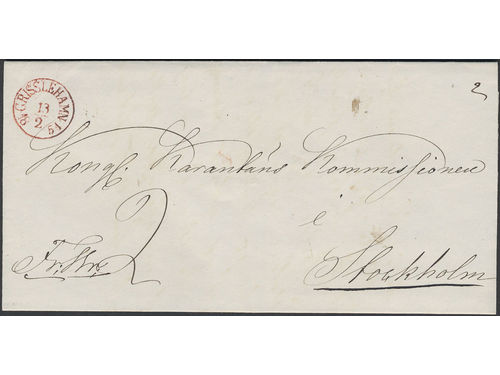 GRISSLEHAMN
13
2
51
2
Kongl. Karantäns Kommissionen
i
2
Stockholm